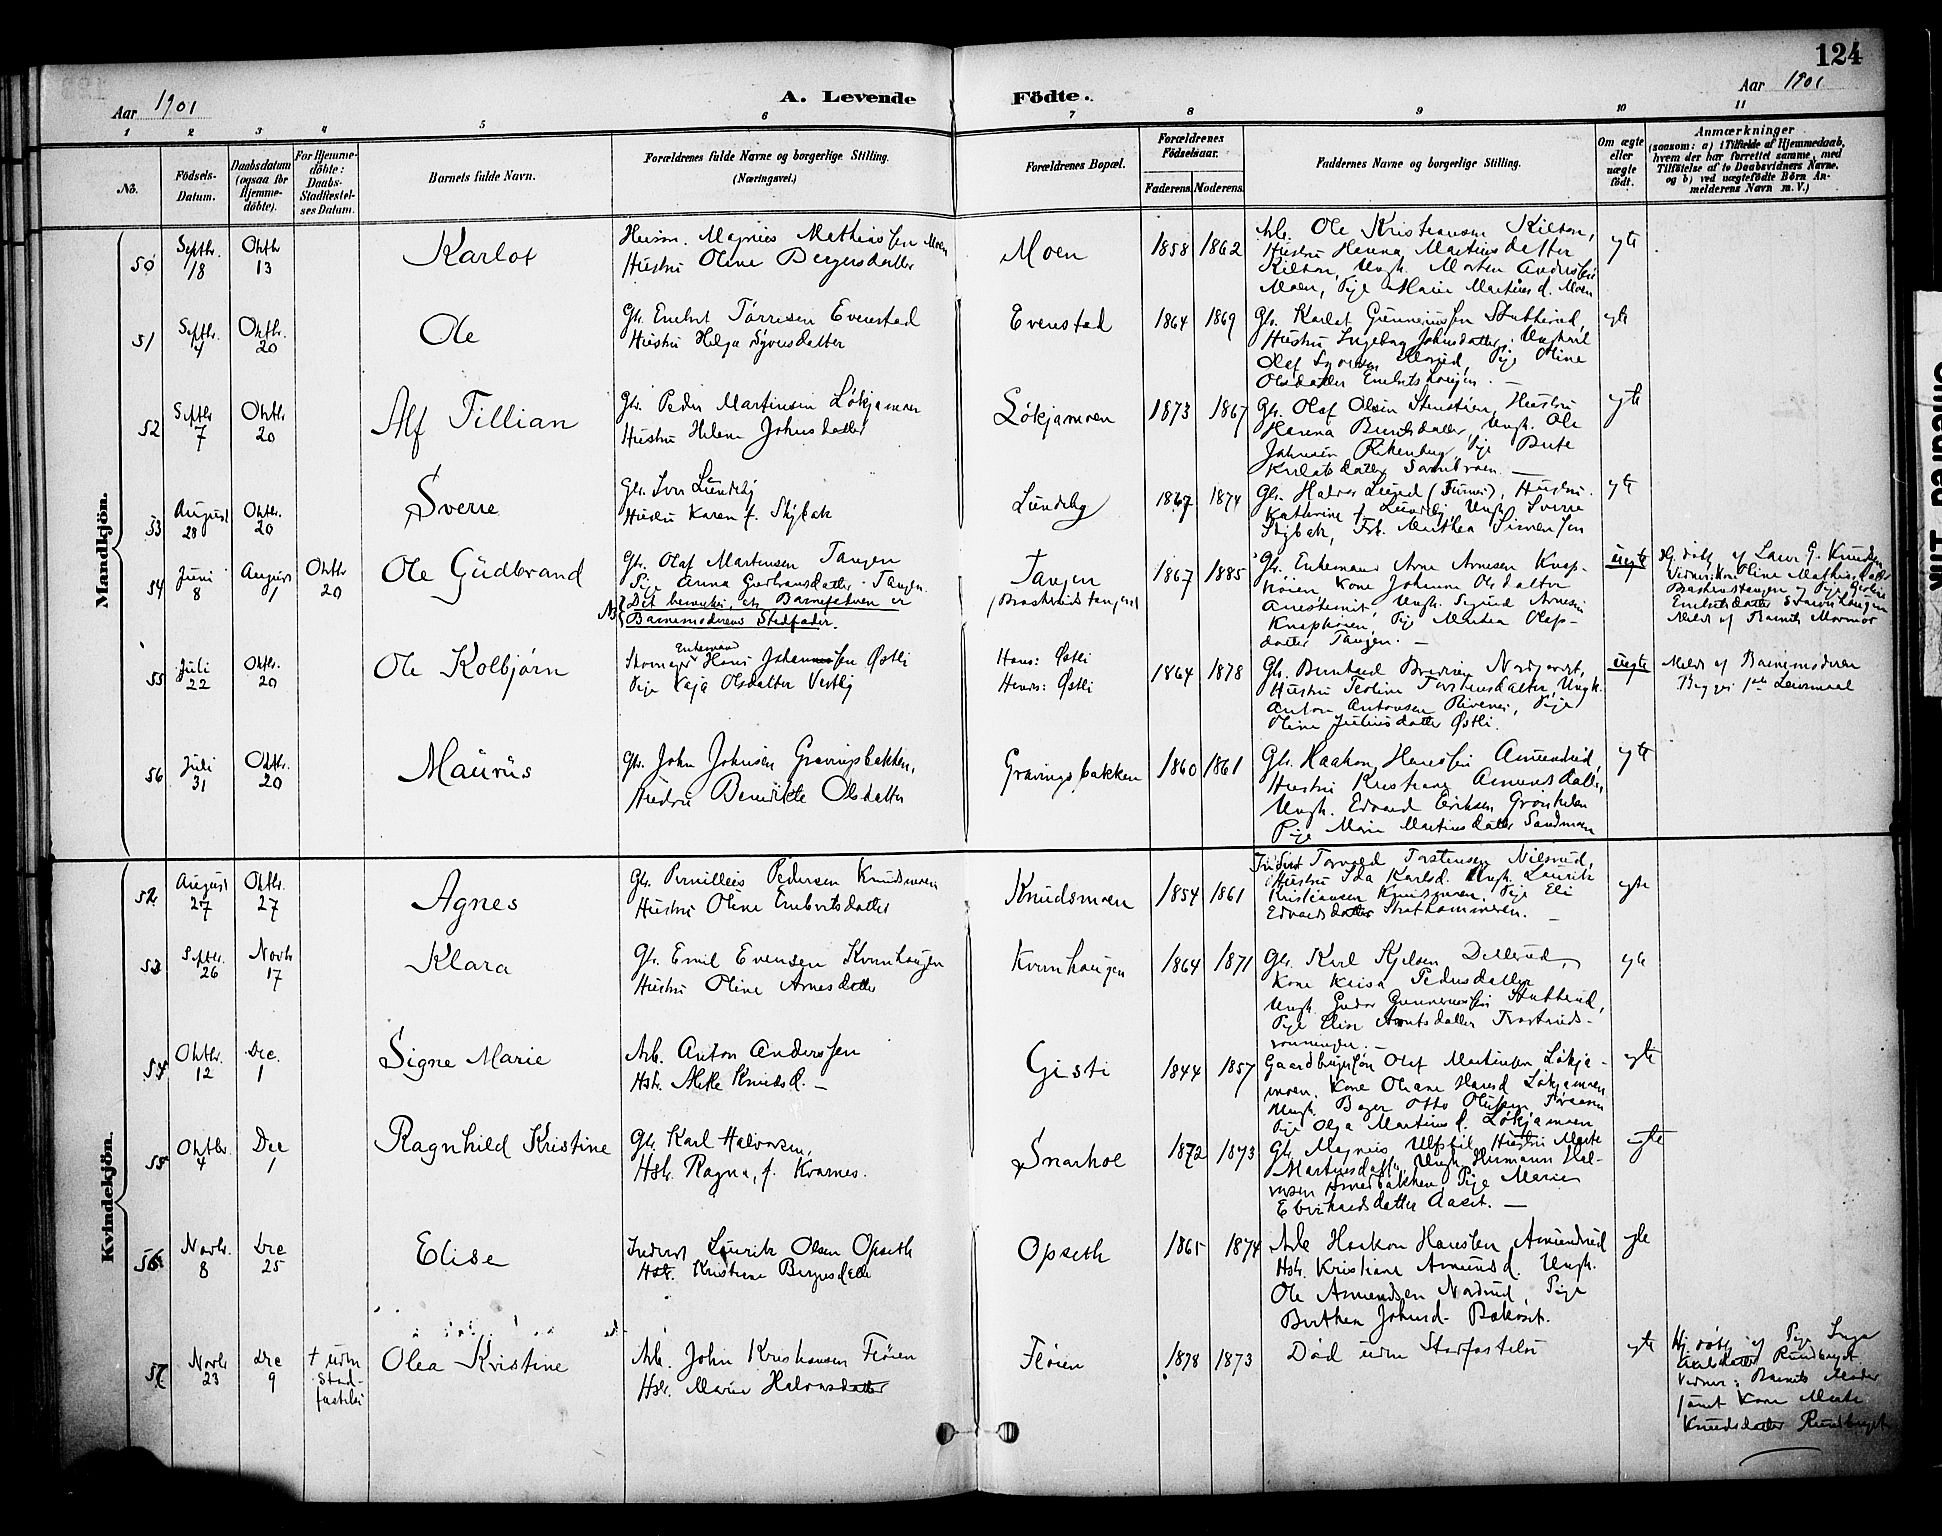 124
Aar 1901
A. Levende Födte.
Aar 1901
1 2 3 4 5 6 7 8 9 10 11
No.
Födsels-Datum.
Daabsdatum (ogsaa for Hjemme-döbte).
For Hjemme-döbte: Daabs-Stadfæstel-ses Datum.
Barnets fulde Navn.
Forældrenes fulde Navne og borgerlige Stilling.
(Næringsvei.)
Forældrenes Bopæl.
Forældrenes Födselsaar.
Faderens. Moderens.
Faddernes Navne og borgerlige Stilling.
Om ægte eller uægte födt.
Anmærkninger
(saasom: a) i Tilfælde af Hjemmedaab,
hvem der har forrettet samme, med
Tilföielse af to Daabsvidners Navne.
og b) ved uægtefödte Börn An-
melderens Navn m. V.)
Mandkjön.
50 Septbr. 18 Oktbr 13 Karlot
Husm. Magnus Mathissen Moen
Hustru Oline Bergersdatter
Moen 1858 1862
Arb. Ole Kristiansen Kilton,
Hustru Hanna Martinsdatter
Kilton, Ungk. Morten Anderssen
Moen, Pige Marie Martinsd. Moen
ægte
51 Septbr. 4 Oktbr. 20 Ole
Gbr. Embret Tørrisen Evenstad
Hustru Helga Syversdatter
Evenstad 1864 1869
Gbr. Karlot Gunneriussen Stubberud,
Hustru Ingeborg Johnsdatter, Ungkarl
Olaf Syversen Morud, Pige Oline
Olsdatter Embretshaugen. —
ægte
52 Septbr 7 Oktbr 20 Alf Tillian
Gbr. Peder Martinsen Løkjamoen
Hustru Helene Johnsdatter
Løkjamoen 1873 1867
Gbr. Olaf Olsen Stenstien, Hustru
Karena Berntsdatter, Ungk. Ole
Johnsen Rekenhaug, Pige Berte
ægte
53 August 28 Oktbr. 20 Sverre
Gbr. Iver Lundeby
Hustru Karen f. Skybak
Lundeby 1867 1874
Gbr. Halvor Lund (Furnes), Hustru
Kathrine f. Lundeby, Ungk. Sverre
Skybak, Frk. Marthea Simensen
ægte
54 Juni 8 August 1 Oktbr 20 Ole Gudbrand
Gbr. Olaf Martinsen Tangen
Pige Anna Gulbransdatter, Tangen
NB Det bemærkes, at Barnefaderen er
Barnemoderens Stedfader.
Tangen
(Braskerudstangen)
1867 1885
Gbr. Enkemand Arne Arnesen Knap-
køien, Kone Johanne Olsdatter
Ungk. Sigurd Arnesen
Knapkøien, Pige Martea Olafs-
datter Tangen. —
uægte
Hj. døbt af Laur. G. Knudsen
Vidner: Kone Oline Mathisdatter
Braskerudtangen og Pige
Embretsdatter
Meldt af Barnets Mormor
55 Juli 22 Oktbr. 20 Ole Kolbjørn
Skomager Enkemand Hans Johannessen Østli
Pige Kaja Olsdatter Vestby
Hans: Østli
Hendes: Østli
1864 1878
Gbr. Bernhard Nordgardet,
Hustru Teoline Torstensdatter, Ungk.
Anton Antonsen, Pige
Oline Juliusdatter Østli.
uægte
Meldt af Barnemoderen
Begges 1ste Leiermaal
56 Juli 31 Oktbr. 20 Maurits
Gbr. John Johnsen Gravingsbakken,
Hustru Benedikte Olsdatter
Gravingsbakken 1860 1861
Gbr. Haakon Hanssen Amundrud,
Hustru Kristiane Amundsdatter,
Ungk. Edvard Eriksen Grønholen
Pige Marie Martinsdatter Sandmoen
ægte
Kvindekjön.
52 August 27 Oktbr. 27 Agnes
Gbr. Pernillius Pedersen Knudsmoen
Hustru Oline Embretsdatter
Knudsmoen 1854 1861
Inderst Torvald Torstensen Nilsrud,
Hustru Ida Karlsd. Ungk. Laurits
Kristiansen Knudsmoen, Pige Eli
Edvardsdatter Strathammeren. —
ægte
53 Septbr. 26 Novbr 17 Klara
Gbr. Emil Evensen Kvernhaugen
Hustru Oline Arnesdatter
Kvernhaugen 1864 1871
Gbr. Karl Kjelsen Dellerud,
Kone Kaisa Pedersdatter
Ungk. Gudor Gunneriussen Stubberud,
Pige Elise Arntsdatter
ægte
54 Oktbr. 12 Dec. 1 Signe Marie
Arb. Anton Anderssen
Hstr. Mette Knudsd. —
Gisti 1844 1857
Gaardbrugersøn Olaf Martinsen Løkja-
moen. Kone Oliane Hansd Løkjamoen
Ungk. Bager Otto Olufsen,
Pige Olga Martinsd. Løkjamoen
ægte
55 Oktbr. 4 Dec 1 Ragnhild Kristine
Gbr. Karl Halvorsen,
Hstr. Ragna, f. Kvarnes.
Snarhol 1872 1873
Gbr. Magnus Ulfsbøl, Hustru Marte
Martinsdatter, Ungk. Hermann Hal-
vorsen Smedbakken, Pige Marie
Eberhardsdatter Aaset. —
ægte
56 Novbr. 8 Dec 25 Elise
Inderst Laurits Olsen Opseth
Hstr. Kristiane Bergersdatter
Opseth 1865 1874
Arb Haakon Hanssen Amundrud
Hstr. Kristiane Amundsd. Ungk.
Ole Amundsen Nordrud, Pige
Berthea Johnsd. Bakoset.
ægte
57 Novbr 23 Dec 9 † uden Stad-fæstelse Olea Kristine
Arb. John Kristiansen Fløien
Hstr. Marie Halvorsdatter
Fløien 1878 1873
Død uden Stadfæstelse
ægte
Hj. døbt af Pige Inga
Axelsdatter Rundhaget.
Vidner: Barnets Moder
samt Kone Marte
Knudsdatter Rundhaget